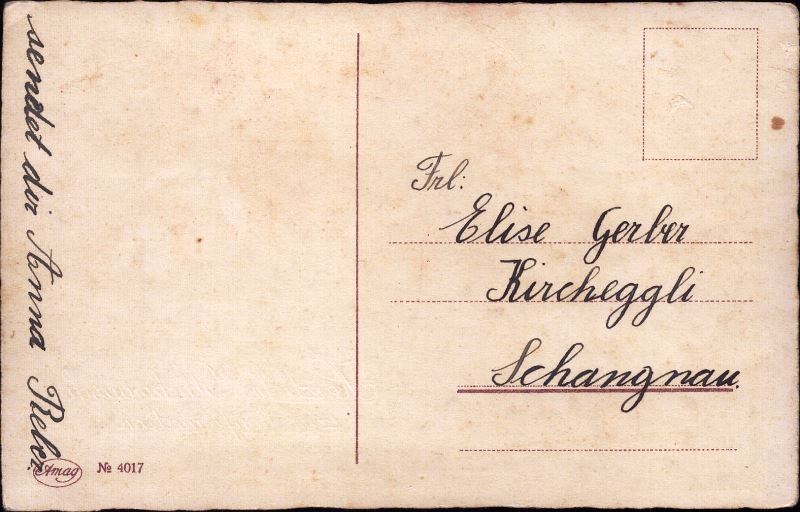 sendet dir Anna Reber.
Frl:
Elise Gerber
Kircheggli
Schangnau.
Amag
№ 4017